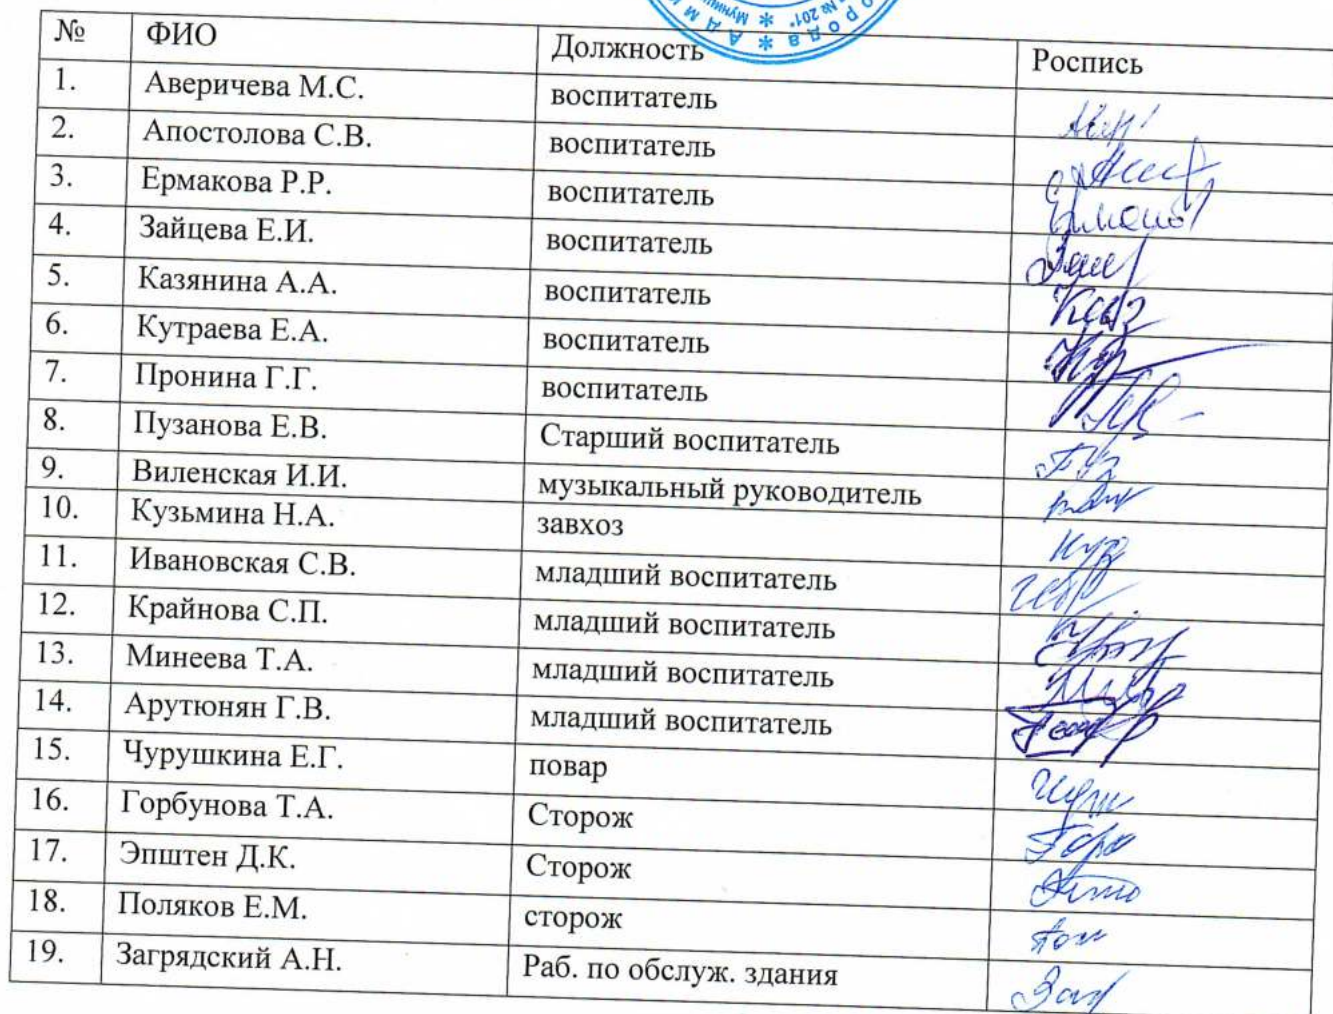 орода * Адми
№ 201
№ ФИО Должность Роспись
1. Аверичева М.С. воспитатель
2. Апостолова С.В. воспитатель
3. Ермакова Р.Р. воспитатель
4. Зайцева Е.И. воспитатель
5. Казянина А.А. воспитатель
6. Кутраева Е.А. воспитатель
7. Пронина Г.Г. воспитатель
8. Пузанова Е.В. Старший воспитатель
9. Виленская И.И. музыкальный руководитель
10. Кузьмина Н.А. завхоз
11. Ивановская С.В. младший воспитатель
12. Крайнова С.П. младший воспитатель
13. Минеева Т.А. младший воспитатель
14. Арутюнян Г.В. младший воспитатель
15. Чурушкина Е.Г. повар
16. Горбунова Т.А. Сторож
17. Эпштен Д.К. Сторож
18. Поляков Е.М. сторож
19. Загрядский А.Н. Раб. по обслуж. здания